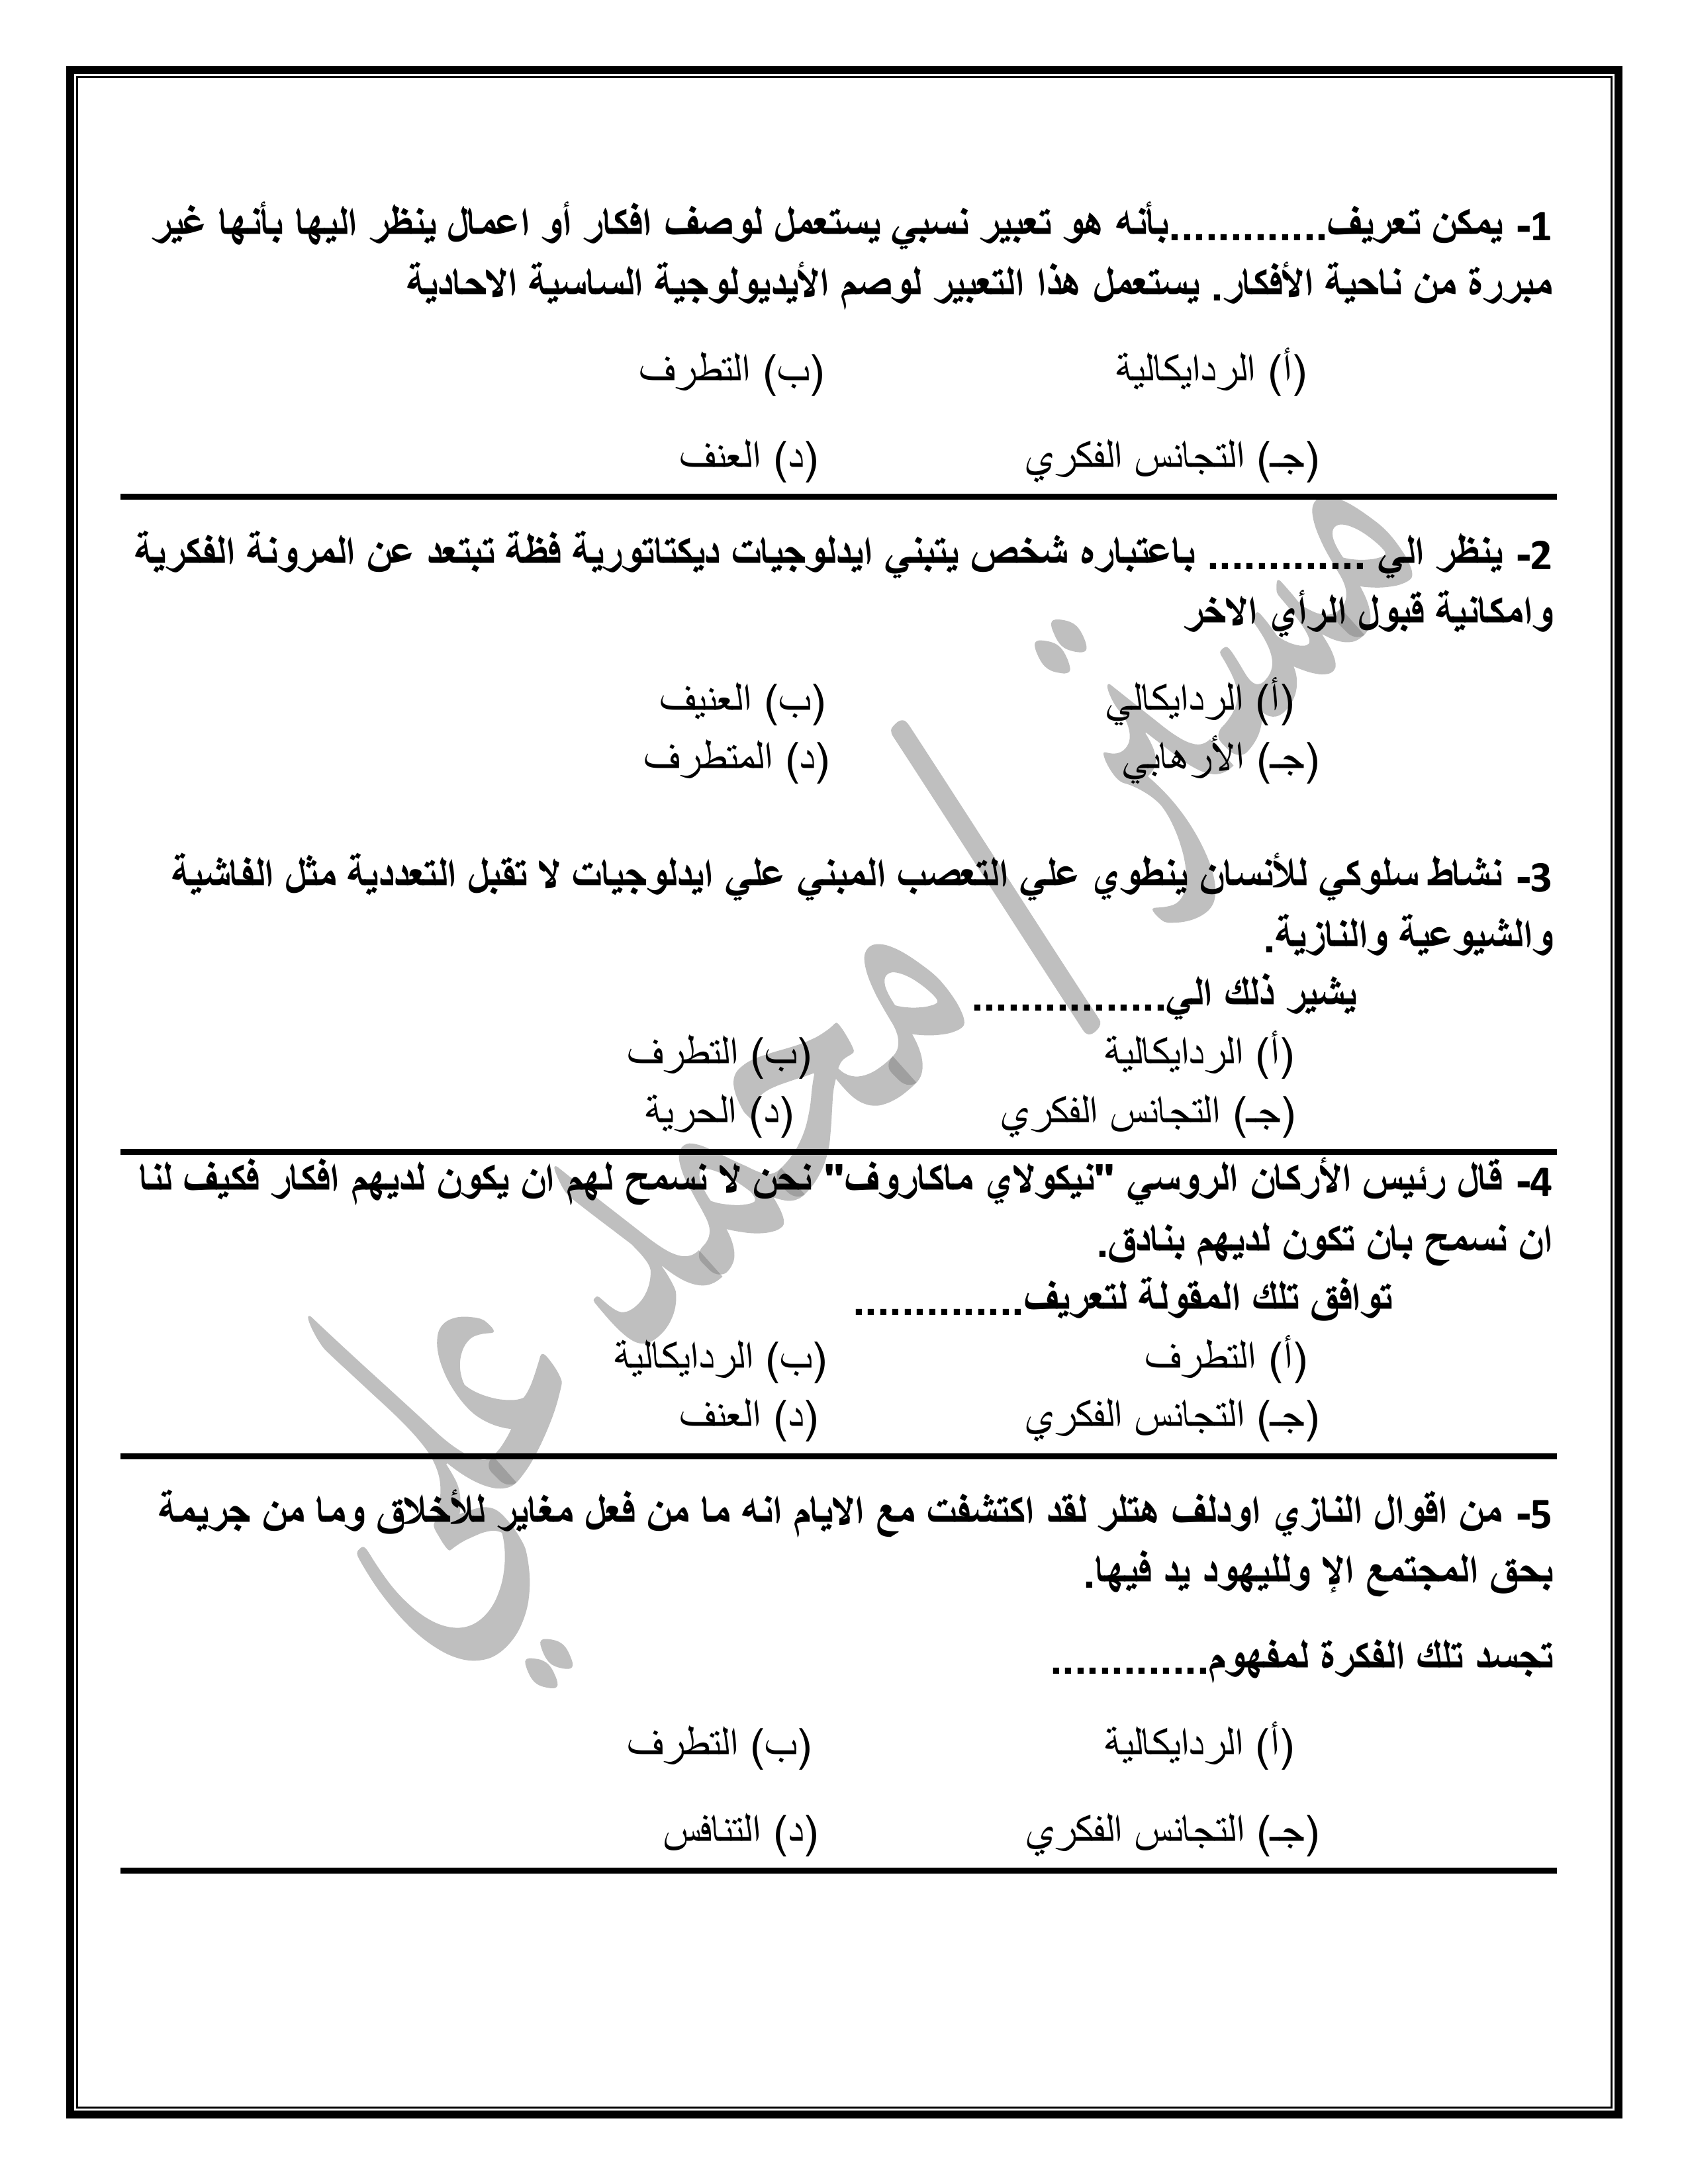 1- يمكن تعريف.............بأنه هو تعبير نسبي يستعمل لوصف افكار أو اعمال ينظر اليها بأنها غير
مبررة من ناحية الأفكار. يستعمل هذا التعبير لوصم الأيديولوجية الساسية الاحادية
(أ) الردايكالية (ب) التطرف
(جـ) التجانس الفكري (د) العنف
2- ينظر الي ............. باعتباره شخص يتبني ايدلوجيات ديكتاتورية فظة تبتعد عن المرونة الفكرية
وامكانية قبول الرأي الاخر
(أ) الردايكالي (ب) العنيف
(جـ) الأرهابي (د) المتطرف
3- نشاط سلوكي للأنسان ينطوي علي التعصب المبني علي ايدلوجيات لا تقبل التعددية مثل الفاشية
والشيوعية والنازية.
يشير ذلك الي................
(أ) الردايكالية (ب) التطرف
(جـ) التجانس الفكري (د) الحرية
4- قال رئيس الأركان الروسي "نيكولاي ماكاروف" نحن لا نسمح لهم ان يكون لديهم افكار فكيف لنا
ان نسمح بان تكون لديهم بنادق.
توافق تلك المقولة لتعريف..............
(أ) التطرف (ب) الردايكالية
(جـ) التجانس الفكري (د) العنف
5- من اقوال النازي اودلف هتلر لقد اكتشفت مع الايام انه ما من فعل مغاير للأخلاق وما من جريمة
بحق المجتمع الإ ولليهود يد فيها.
تجسد تلك الفكرة لمفهوم.............
(أ) الردايكالية (ب) التطرف
(جـ) التجانس الفكري (د) التنافس
مستر/محمد علي